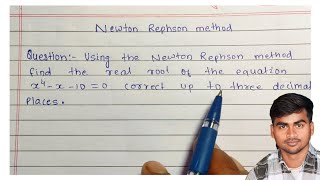 Newton Rephson method
Question:- Using the Newton Rephson method
find the real root of the equation
x⁴-x-10=0 correct up to three decimal
places.